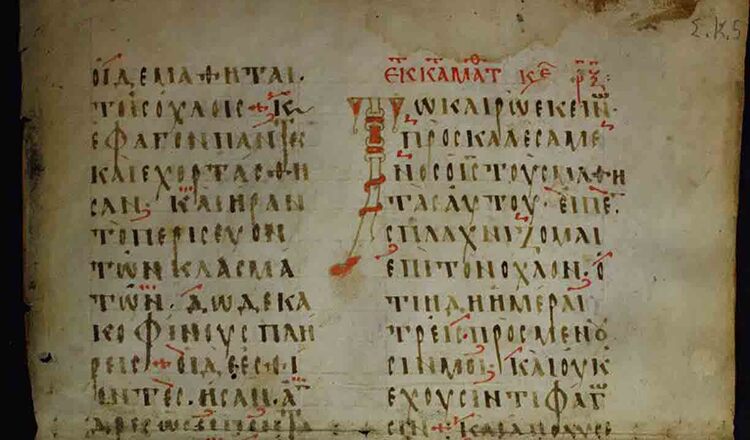 ΟΙΔΕΜΑΘΗΤΑΙ.
ΤΟΙΣΟΧΛΟΙΣ + Κ
ΕΦΑΓΟΝΠΑΝΤΕΣ
ΚΑΙΕΧΟΡΤΑΣΘΗ
ΣΑΝ. ΚΑΙΗΡΑΝ
ΤΟΠΕΡΙΣΕΥΟΝ
ΤΩΝΚΛΑΣΜΑ
ΤΩΝ. ΔΩΔΕΚΑ
ΚΟΦΙΝΟΥΣΠΛΗ
ΡΕΙΣ + ΟΙΔΕΕΣΘΙ
ΟΝΤΕΣ. ΗΣΑΝ. ΑΝ
ΔΡΕΣΩΣΕΙΠΕΝΤΑ
Σ.Κ.5
ΕΚΚΑΜΑΤΘ ΚΕ
ΤΩΚΑΙΡΩΕΚΕΙΝ
ΠΡΟΣΚΑΛΕΣΑΜΕ
ΝΟΣΟΙΣΤΟΥΣΜΑΘΗ
ΤΑΣΑΥΤΟΥ. ΕΙΠΕ
ΣΠΛΑΧΝΙΖΟΜΑΙ
ΕΠΙΤΟΝΟΧΛΟΝ. Ο
ΤΙΗΔΗΗΜΕΡΑΙ
ΤΡΕΙΣ.ΠΡΟΣΜΕΝΟΥ
ΣΙΝΜΟΙ. ΚΑΙΟΥΚ
ΕΧΟΥΣΙΝΤΙΦΑΓ
ΣΙΝ + ΚΑΙΑΠΟΛΥΣΕ